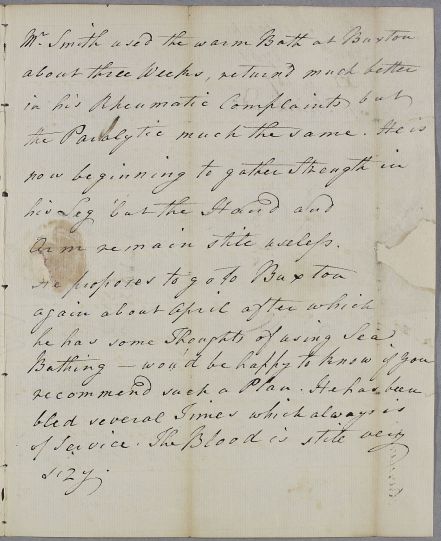 Mr Smith used the warm Bath at Buxton
about three Weeks, return'd much better
in his Rheumatic Complaints but
the Paralytic much the same. He is
now beginning to gather Strength in
his Leg but the Hand and
Arm remain stile useless.
He proposes to go to Buxton
again about April after which
he has some Thoughts of using Sea
Bathing — wou'd be happy to know if you
recommend such a Plan. He has been
bled several Times which always is
of Service. The Blood is stile very
sizy.